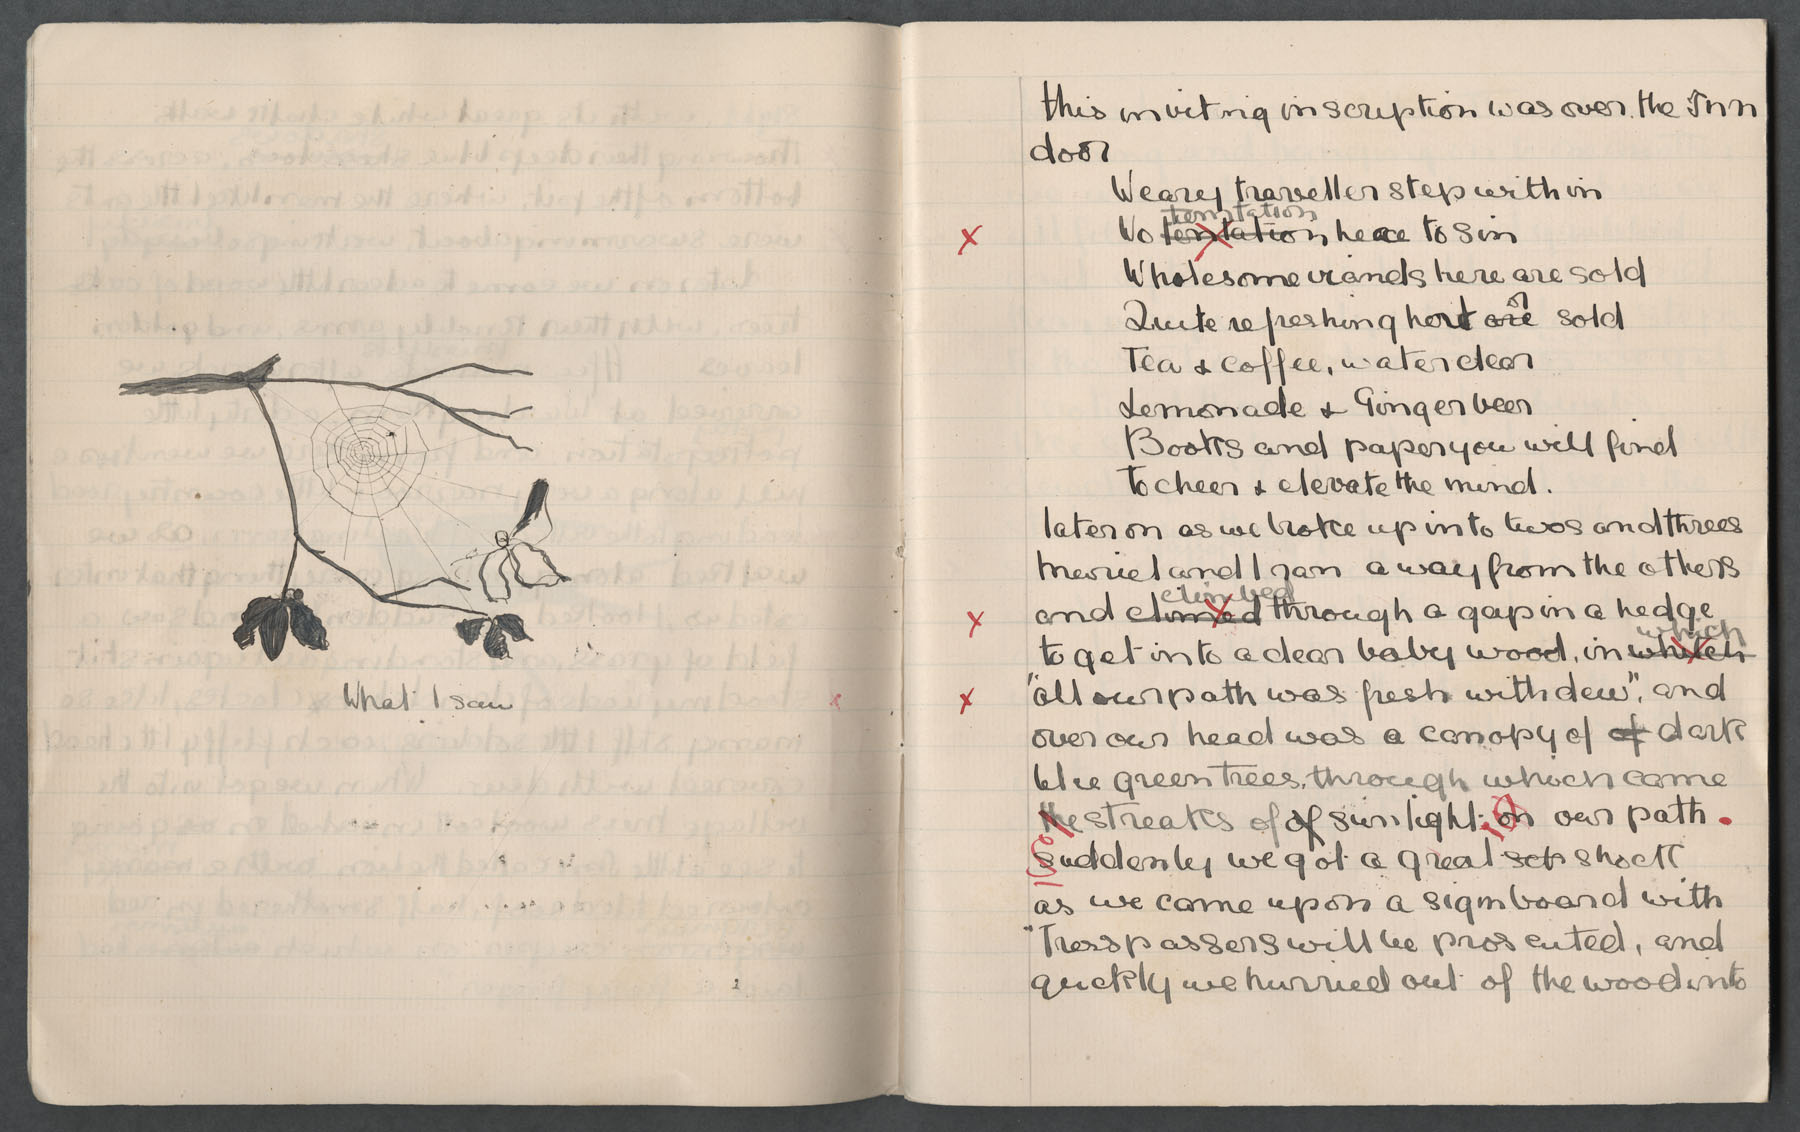 What I saw
this inviting inscription was over the Inn
door
Weary traveller step within
temptation
No tentation here to sin
Wholesome viands here are sold
Quite refreshing hot or sold
Tea & coffee, water clear
Lemonade & Ginger beer
Books and paper you will find
to cheer & elevate the mind.
later on as we broke up into twos and threes
Meriel and I ran away from the others
climbed
and climed through a gap in a hedge
which
to get into a dear baby wood, in
"all our path was fresh with dew", and
over our head was a canopy of of dark
blue green trees, through which came
the streaks of of sunlight on our path.
suddenly we got a great shock
as we came upon a signboard with
"Tresspassers will be prosecuted, and
quickly we hurried out of the wood into